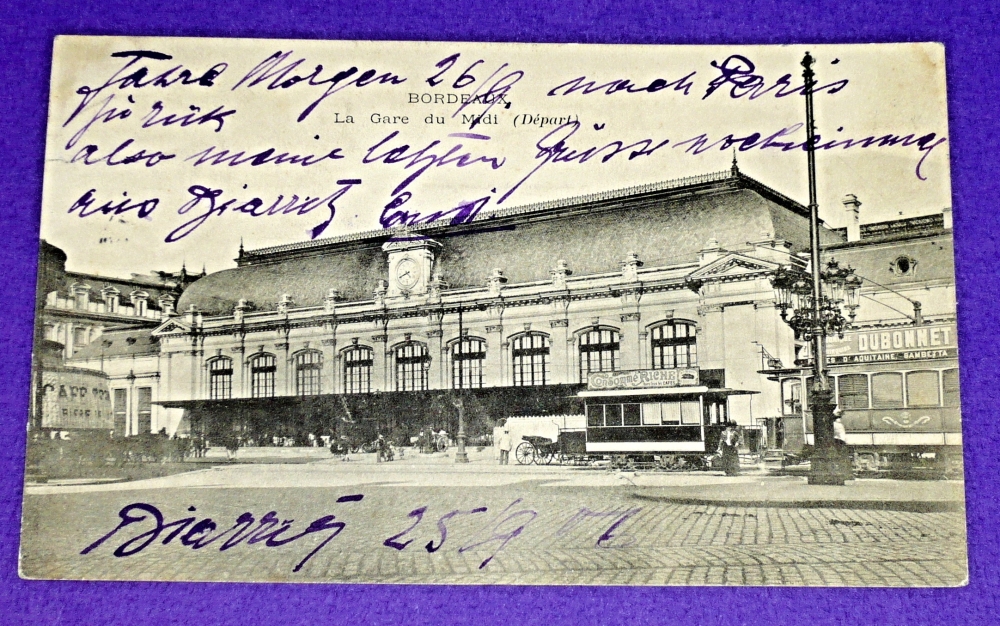 Fahre Morgen 26/9. nach Parris
zürük
BORDEAUX
La Gare du Midi (Départ)
also meine letzten Grüsse nocheinmal
aus Biarritz Emil
CAFE
CONSOMMÉ RICHE
DUBONNET
D'AQUITAINE. GAMBETTA
Biarritz 25/9